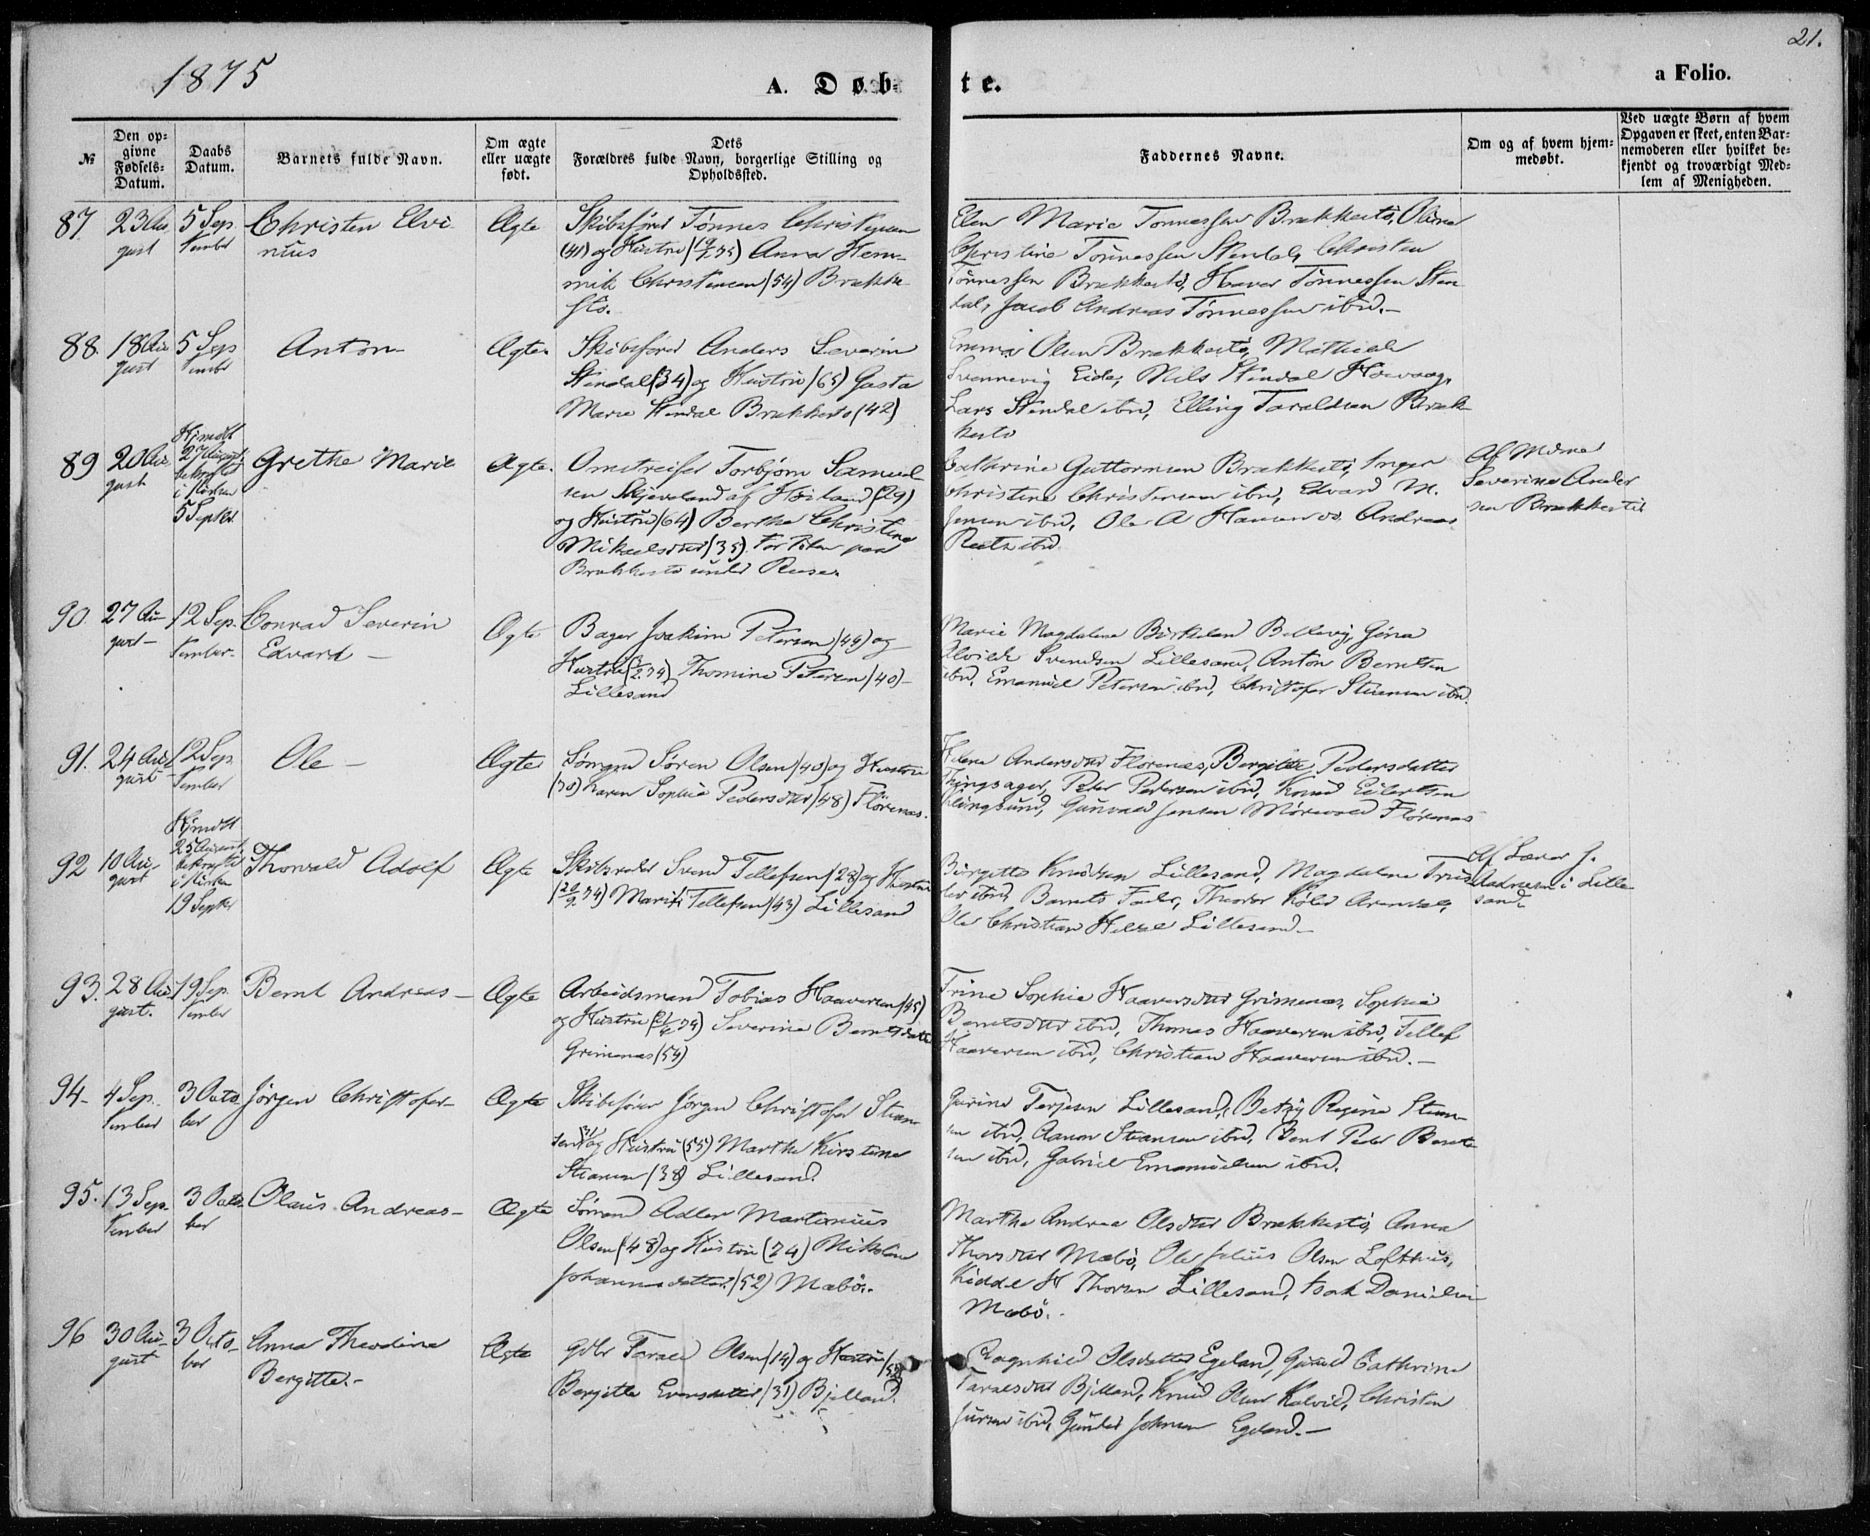 1875
A. Døb-
te.
a Folio.
21.
№
Den op-
givne
Fødsels-
Datum.
Daabs
Datum.
Barnets fulde Navn.
Om ægte
eller uægte
født.
Dets
Forældres fulde Navn, borgerlige Stilling og
Opholdssted.
Faddernes Navne.
Om og af hvem hjem-
medøbt.
Ved uægte Børn af hvem
Opgaven er skeet, enten Bar-
nemoderen eller hvilket be-
kjendt og troværdigt Med-
lem af Menigheden.
87.
23 Au
gust
5 Sep
tember
Christen Elvi
nius
Ægte
Skibsfører Tønnes Christensen
(41) og Hustru Anna Hen-
Christensen (54) Brække-
stø.
Elen Marie Tønnessen Brækkestø, Oline
Christine Tønnessen Stendal, Christen
Tønnessen Brækkestø, Haver Tønnessen Sten
dal, Jacob Andreas Tønnessen ibid.-
88.
18 Au
gust
5 Sep
tember
Anton
Ægte
Skibsfører Anders Severin
Stendal (34) og Hustru (65) Gusta
Marie Stendal Brækkestø (42)
Emma Olsen Brækkestø, Mathilde
Svennevig Eide, Nils Stendal Høivaag,
Lars Stendal ibid, Elling Taraldsen Bræk-
kestø
89
20 Au
gust
Hjmdøbt
27 August
i Kirken
5 Septbr.
Grethe Marie
Ægte.
Omstreifer Torbjørn Samuel
sen Skjeveland af Høiland (29)
og Hustru (64) Berthe Christine
Mikaelsdtter (35)
Brækkestø under
Cathrine Guttormsen Brækkestø, Inger
Christine Christensen ibid, Edvard M.
Jensen ibid, Ole A Hansen do. Andreas
ibid
Af
Severine Ander
sen Brækkestø
90.
27 Au-
gust-
12 Sep-
tember-
Conrad Severin
Edvard -
Ægte
Bager Joakim Petersen (49) og
Hustru Thomine Petersen (40)-
Lillesand
Marie Magdalene Birkeland Bellevig, Gina
Alvilde Svendsen Lillesand, Anton Berntsen
ibid, Emanuel Petersen ibid, Christofer Steensen ibid.
91.
24 Au
gust
12 Sep
tember
Ole -
Ægte
Sømand Søren Olsen (40) og Hustru
(70) Karen Sophie Pedersdtter (48) Flørenæs.
Helene Andersdtter Florenæs, Bergitte Pedersdatter
Thingsager, Peter Pedersen ibid, Knud Eilertsen
Klingsund, Gunvald Jensen Flørenæs
92
10 Au-
gust
Hjmdøbt
25 August
i Kirken
19 Septbr
Thorvald Adolf
Ægte
Skibsreder Svend Tellefsen (28) og Hustru
Tellefsen (43) Lillesand
Birgitte Knudsen Lillesand, Magdalene
ibid, Barnets Fader, Theodor Arendal,
Ole Christian Lillesand-
Af
i Lille
sand
93.
28 Au
gust.
19 Sep
tember
Bernt Andreas-
Ægte
Arbeidsmand Tobias Haaversen (45)
og Hustru Severine Berntsdatter
Grimenæs (54)
Trine Sophie Haaversdtter Grimenæs, Sophie
Berntsdtter ibid, Thomas Haaversen ibid, Tellef
Haaversen ibid, Christian Haaversen ibid.-
94-
4 Sep-
tember
3 Octo
ber
Jørgen Christofer-
Ægte
Skibsfører Jørgen Christofer Steen
sen og Hustru (55) Marthe Kirstine
Steensen (38) Lillesand.
Gurine Terjesen Lillesand, Betzy Regine Steen-
sen ibid, Aanon Steensen ibid, Bent Peder Bernt
sen ibid, Gabriel Emanuelsen ibid.
95.
13 Sep-
tember
3 Octo
ber
Olaus Andreas-
Ægte
Sømand Adler Martinius
Olsen (48) og Hustru (74) Nikoline
Johannesdatter (52) Mæbø.
Marthe Andrea Olsdtter Brækkestø, Anna
Thorsdtter Mæbø, Ole Julius Olsen Lofthus,
H Thorsen Lillesand, Isak Danielsen
Mæbø.
96
30 Au-
gust
3 Octo-
ber
Anna Theodine
Bergitte.-
Ægte
Gdbr Tarald Olsen (14) og Hustru
Bergitte Evensdatter (31) Bjelland.
Ragnhild Olsdatter Egeland, Gunild Cathrine
Taraldsdtter Bjelland, Knud Olsen Kalvild, Christen
ibid, Gunder Johnsen Egeland.-